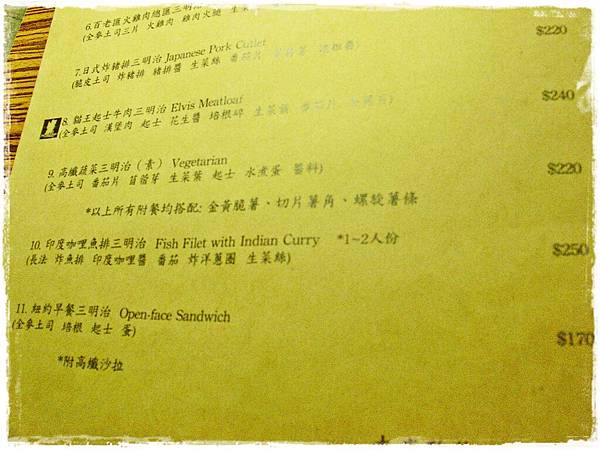 6.百老匯火雞肉總匯三明治
(全麥土司三片 火雞肉 雞肉火腿 生菜
$220
7.日式炸豬排三明治 Japanese Pork Cutlet
(脆皮土司 炸豬排 豬排醬 生菜絲 番茄片
8. 貓王起士牛肉三明治 Elvis Meatloaf
(全麥土司 漢堡肉 起士 花生醬 培根碎 生菜葉 番茄片
$240
9. 高纖蔬菜三明治 (素) Vegetarian
(全麥土司 番茄片 苜蓿芽 生菜葉 起士 水煮蛋 醬料)
$220
*以上所有附餐均搭配: 金黃脆薯、切片薯角、螺旋薯條
10. 印度咖哩魚排三明治 Fish Filet with Indian Curry *1~2人份
(長法 炸魚排 印度咖哩醬 番茄 炸洋蔥圈 生菜絲)
$250
11. 紐約早餐三明治 Open-face Sandwich
(全麥土司 培根 起士 蛋)
$170
*附高纖沙拉